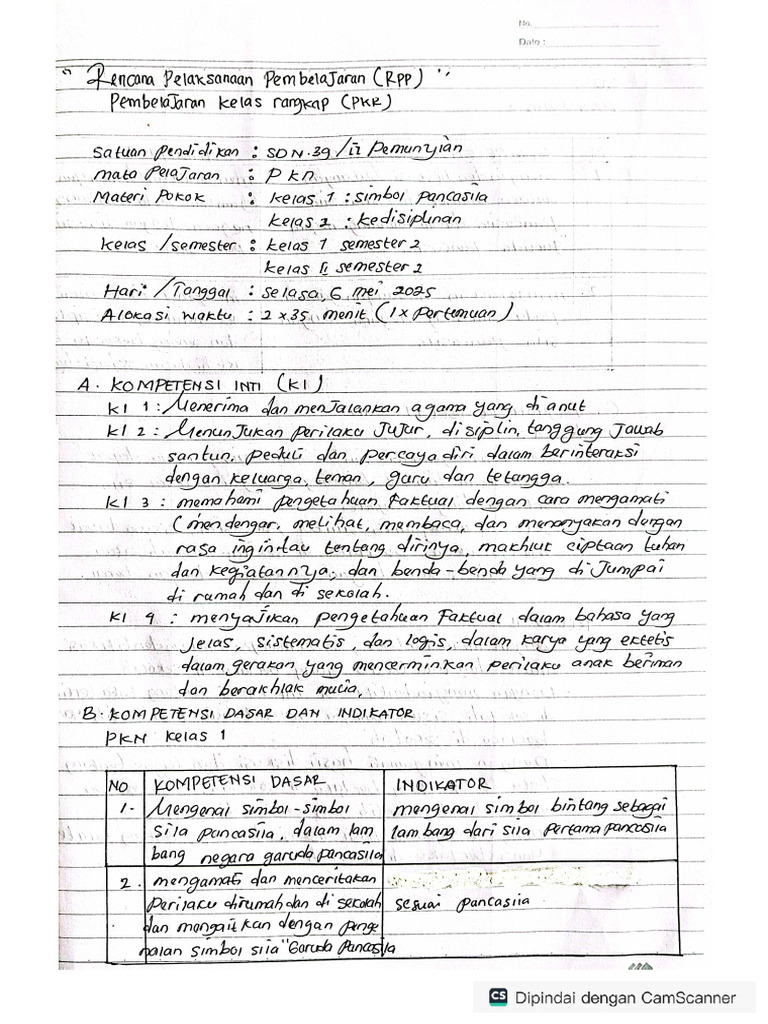 No.
Date :
" Rencana Pelaksanaan Pembelajaran (RPP) "
Pembelajaran kelas rangkap (PKR)
Satuan Pendidikan : SDN.39/II Pemunyian
mata Pelajaran : PKn
Materi Pokok : kelas 1 : simbol pancasila
kelas 2 : kedisiplinan
kelas / semester : kelas 1 semester 2
kelas II semester 2
Hari / Tanggal : selasa, 6 mei 2025
Alokasi waktu : 2 x 35 menit (1 x Pertemuan)
A. KOMPETENSI INTI (KI)
KI 1 : Menerima dan menjalankan agama yang dianut
KI 2 : Menunjukan perilaku jujur, disiplin, tanggung jawab
santun, peduli dan percaya diri dalam berinteraksi
dengan keluarga, teman, guru dan tetangga.
KI 3 : memahami pengetahuan faktual dengan cara mengamati
(mendengar, melihat, membaca, dan menanyakan dengan
rasa ingin tau tentang dirinya, makhluk ciptaan tuhan
dan kegiatannya, dan benda-benda yang dijumpai
di rumah dan di sekolah.
KI 4 : menyajikan pengetahuan faktual dalam bahasa yang
jelas, sistematis, dan logis, dalam karya yang estetis
dalam gerakan yang mencerminkan perilaku anak beriman
dan berakhlak mulia,
B. KOMPETENSI DASAR DAN INDIKATOR
PKN kelas 1
NO KOMPETENSI DASAR INDIKATOR
1. Mengenal simbol-simbol mengenal simbol bintang sebagai
sila pancasila, dalam lam lambang dari sila pertama pancasila
bang negara garuda pancasila
2. mengamati dan menceritakan
Perilaku dirumah dan di sekolah sesuai pancasila
dan mengaitkan dengan penge
nalan simbol sila "Garuda Pancasila
CS Dipindai dengan CamScanner